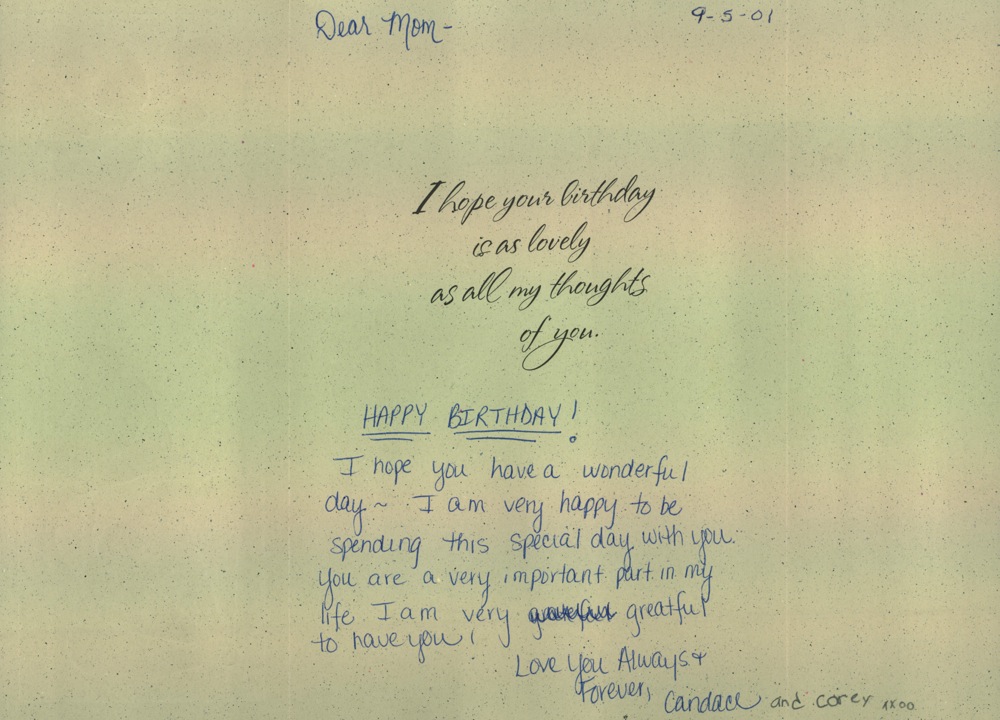 Dear Mom-
9-5-01
I hope your birthday
is as lovely
as all my thoughts
of you.
HAPPY BIRTHDAY!
I hope you have a wonderful
day ~ I am very happy to be
spending this special day with you.
You are a very important part in my
life. I am very greatful
to have you!
Love You Always &
Forever,
Candace and corey